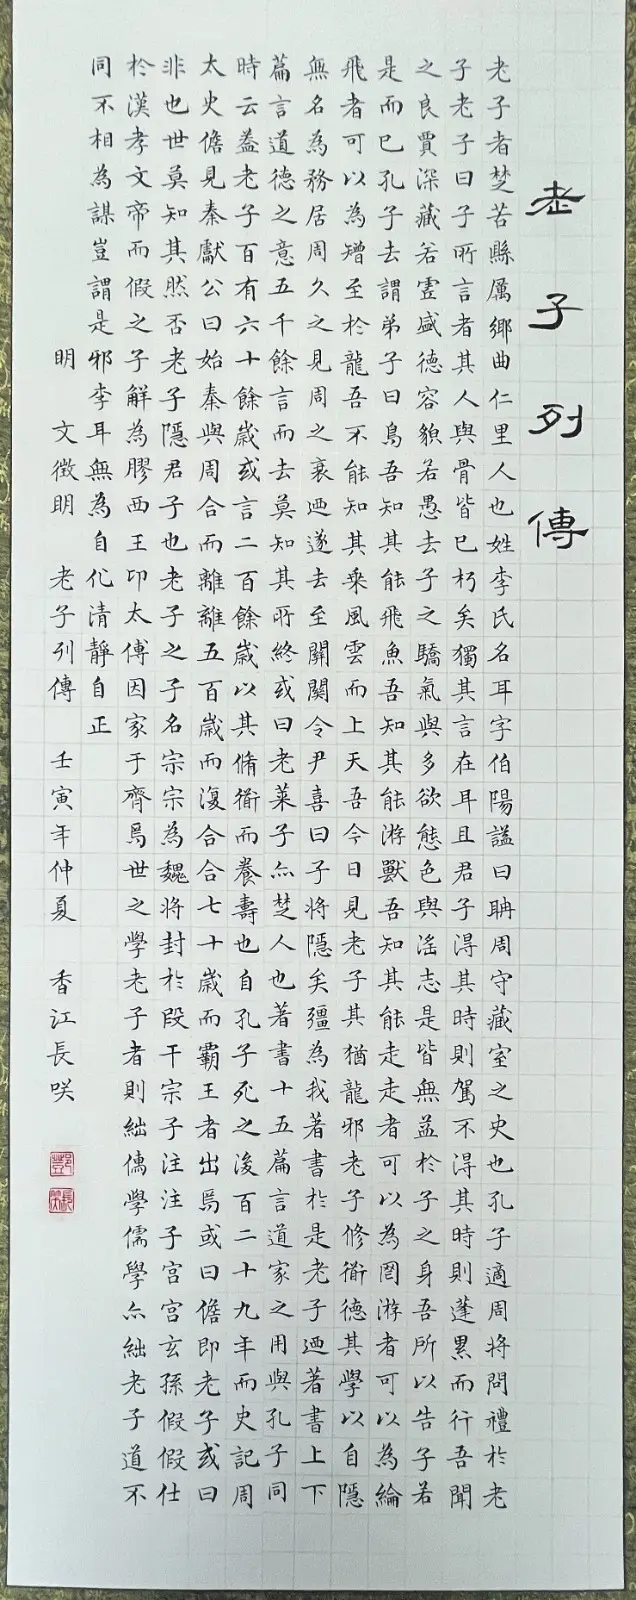 老子列傳
老子者楚苦縣厲鄉曲仁里人也姓李氏名耳字伯陽謚曰聃周守藏室之史也孔子適周將問禮於老
子老子曰子所言者其人與骨皆已朽矣獨其言在耳且君子得其時則駕不得其時則蓬累而行吾聞
之良賈深藏若虛盛德容貌若愚去子之驕氣與多欲態色與淫志是皆無益於子之身吾所以告子若
是而已孔子去謂弟子曰鳥吾知其能飛魚吾知其能游獸吾知其能走走者可以為罔游者可以為綸
飛者可以為矰至於龍吾不能知其乘風雲而上天吾今日見老子其猶龍邪老子修衜德其學以自隱
無名為務居周久之見周之衰迺遂去至關關令尹喜曰子將隱矣彊為我著書於是老子迺著書上下
篇言道德之意五千餘言而去莫知其所終或曰老萊子亦楚人也著書十五篇言道家之用與孔子同
時云蓋老子百有六十餘歲或言二百餘歲以其脩衜而養壽也自孔子死之後百二十九年而史記周
太史儋見秦獻公曰始秦與周合而離離五百歲而復合合七十歲而霸王者出焉或曰儋即老子或曰
非也世莫知其然否老子隱君子也老子之子名宗宗為魏將封於段干宗子注注子宮宮玄孫假假仕
於漢孝文帝而假之子解為膠西王卬太傅因家于齊焉世之學老子者則絀儒學儒學亦絀老子道不
同不相為謀豈謂是邪李耳無為自化清靜自正
明 文徵明 老子列傳 壬寅年仲夏 香江長咲